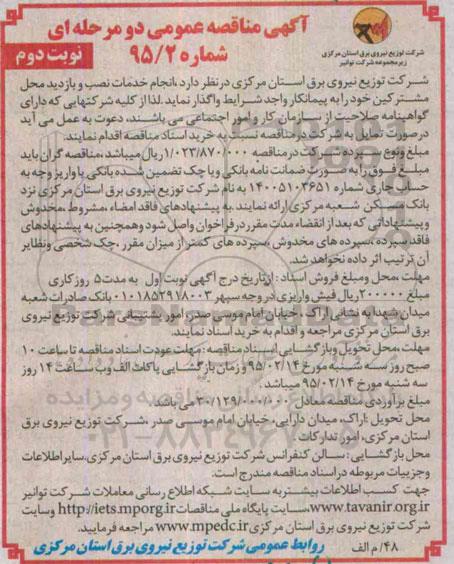 آگهی مناقصه عمومی دو مرحله ای
شماره ۹۵/۲
نوبت دوم
شرکت توزیع نیروی برق استان مرکزی
زیرمجموعه شرکت توانیر
شرکت توزیع نیروی برق استان مرکزی درنظر دارد ،انجام خدمات نصب و بازدید محل
مشترکین خود را به پیمانکار واجد شرایط واگذار نماید .لذا از کلیه شرکتهایی که دارای
گواهینامه صلاحیت از سازمان کار و امور اجتماعی می باشند، دعوت به عمل می آید
درصورت تمایل به شرکت درمناقصه نسبت به خرید اسناد مناقصه اقدام نمایند.
مبلغ ونوع سپرده شرکت درمناقصه ۱/۰۲۳/۸۷۰/۰۰۰ریال میباشد ،مناقصه گران باید
مبلغ فوق را به صورت ضمانت نامه بانکی ویا چک تضمین شده بانکی یا واریز وجه به
حساب جاری شماره ۱۴۰۰۵۱۰۳۶۵۱ به نام شرکت توزیع نیروی برق استان مرکزی نزد
بانک مسکن شعبه مرکزی ارائه نمایند .به پیشنهادهای فاقد امضاء ،مشروط ،مخدوش
وپیشنهاداتی که بعد از انقضاء مدت مقرر درفراخوان واصل شود وهمچنین به پیشنهادهای
فاقد سپرده ،سپرده های مخدوش ،سپرده های کمتر از میزان مقرر ،چک شخصی ونظایر
آن ترتیب اثر داده نخواهد شد.
مهلت ،محل ومبلغ فروش اسناد : ازتاریخ درج آگهی نوبت اول به مدت ۵ روز کاری
مبلغ ۲۰۰۰۰۰ ریال فیش واریزی در وجه سپهر ۰۱۰۱۸۵۲۹۱۸۰۰۳ بانک صادرات شعبه
میدان شهدا به نشانی اراک ، خیابان امام موسی صدر، امور پشتیبانی شرکت توزیع نیروی
برق استان مرکزی مراجعه و اقدام به خرید اسناد نمایند.
مهلت ،محل تحویل وبازگشایی اسناد مناقصه : مهلت عودت اسناد مناقصه تا ساعت ۱۰
صبح روز سه شنبه مورخ ۹۵/۰۲/۱۴ وزمان بازگشایی پاکات الف وب ساعت ۱۴ روز
سه شنبه مورخ ۹۵/۰۲/۱۴ میباشد
مبلغ برآوردی مناقصه معادل ۲۰/۱۲۹/۰۰۰/۰۰۰ می باشد.
محل تحویل :اراک، میدان دارایی، خیابان امام موسی صدر ،شرکت توزیع نیروی برق
استان مرکزی، امور تدارکات .
محل بازگشایی : سالن کنفرانس شرکت توزیع نیروی برق استان مرکزی .سایر اطلاعات
وجزییات مربوطه دراسناد مناقصه مندرج است.
جهت کسب اطلاعات بیشتر به سایت شبکه اطلاع رسانی معاملات شرکت توانیر
www.tavanir.org.ir ،سایت پایگاه ملی مناقصات http://iets.mporg.ir وسایت
شرکت توزیع نیروی برق استان مرکزی www.mpedc.ir مراجعه فرمایید.
۴۸/م الف
روابط عمومی شرکت توزیع نیروی برق استان مرکزی
۰۲۱-۸۸۳۴۹۶۷۰-۵